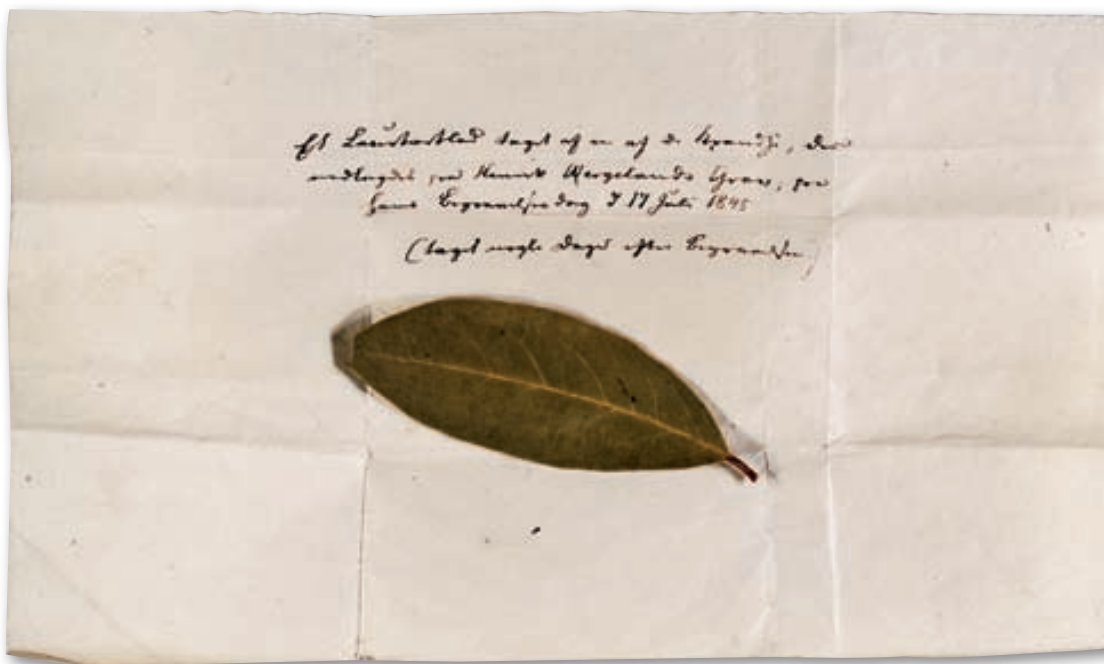 Et Laurbærblad taget af en af de Krandse, der
nedlagdes paa Henrik Wergelands Grav, paa
hans Begravelsesdag d 17 Juli 1845
(taget nogle Dage efter Begravelsen)